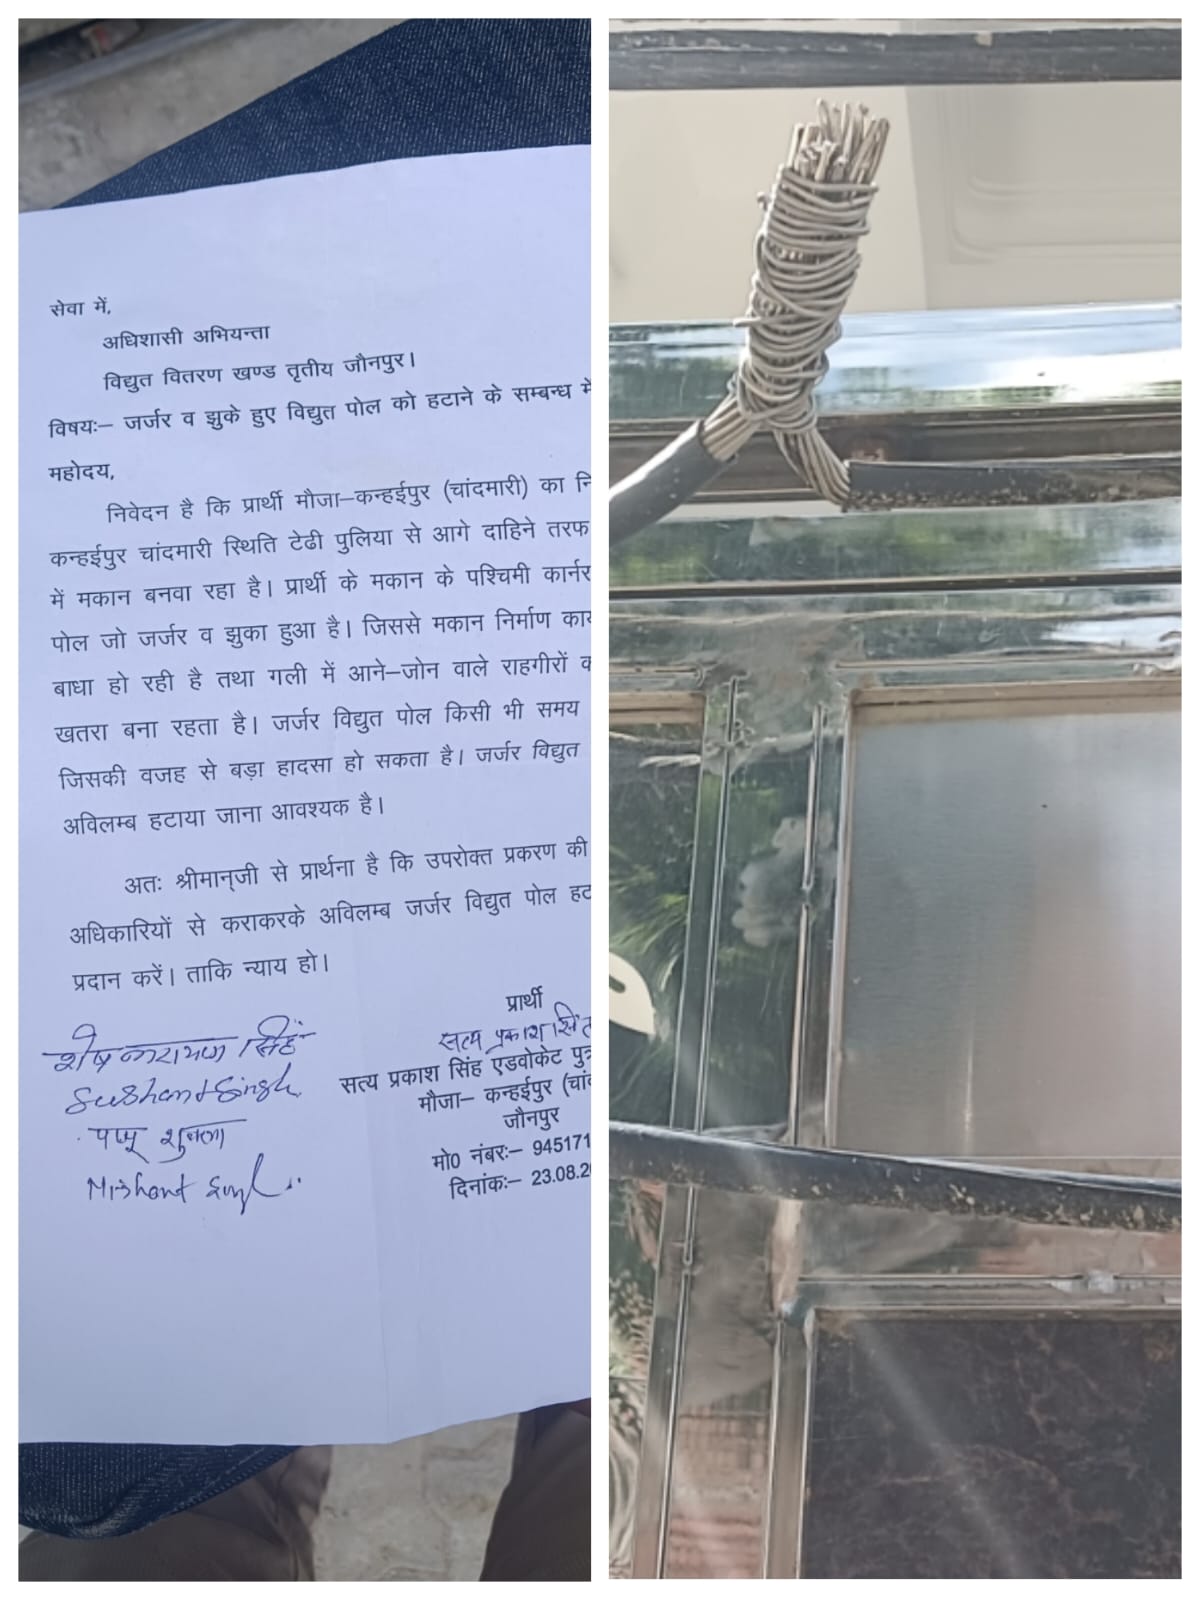 सेवा में,
अधिशासी अभियन्ता
विद्युत वितरण खण्ड तृतीय जौनपुर।
विषयः– जर्जर व झुके हुए विद्युत पोल को हटाने के सम्बन्ध में
महोदय,
निवेदन है कि प्रार्थी मौजा–कन्हईपुर (चांदमारी) का
कन्हईपुर चांदमारी स्थिति टेढी पुलिया से आगे दाहिने तरफ
में मकान बनवा रहा है। प्रार्थी के मकान के पश्चिमी कार्नर
पोल जो जर्जर व झुका हुआ है। जिससे मकान निर्माण
बाधा हो रही है तथा गली में आने–जोन वाले राहगीरों
खतरा बना रहता है। जर्जर विद्युत पोल किसी भी समय
जिसकी वजह से बड़ा हादसा हो सकता है। जर्जर विद्युत
अविलम्ब हटाया जाना आवश्यक है।
अतः श्रीमान्जी से प्रार्थना है कि उपरोक्त प्रकरण की
अधिकारियों से कराकरके अविलम्ब जर्जर विद्युत पोल
प्रदान करें। ताकि न्याय हो।
प्रार्थी
शेष नारायण सिंह
सत्य प्रकाश सिंह
Sushant Singh
सत्य प्रकाश सिंह एडवोकेट पुत्र
मौजा– कन्हईपुर
पप्पू शुक्ला
जौनपुर
Nishant Singh
मो0 नंबरः– 945171
दिनांकः– 23.08.2